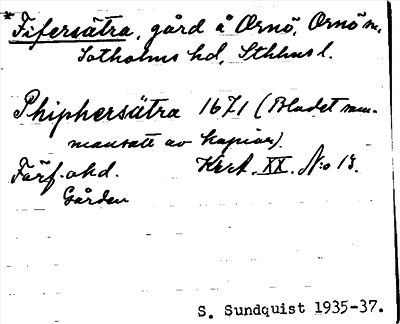 *Fifersätra, gård å Ornö, Ornö sn,
Sotholms hd, Sthlms l.
Phiphersätra 1671 (Bladet sam-
mansatt av kopior).
Förf. okd. Krt. XX. No 13.
Gården
S. Sundquist 1935-37.